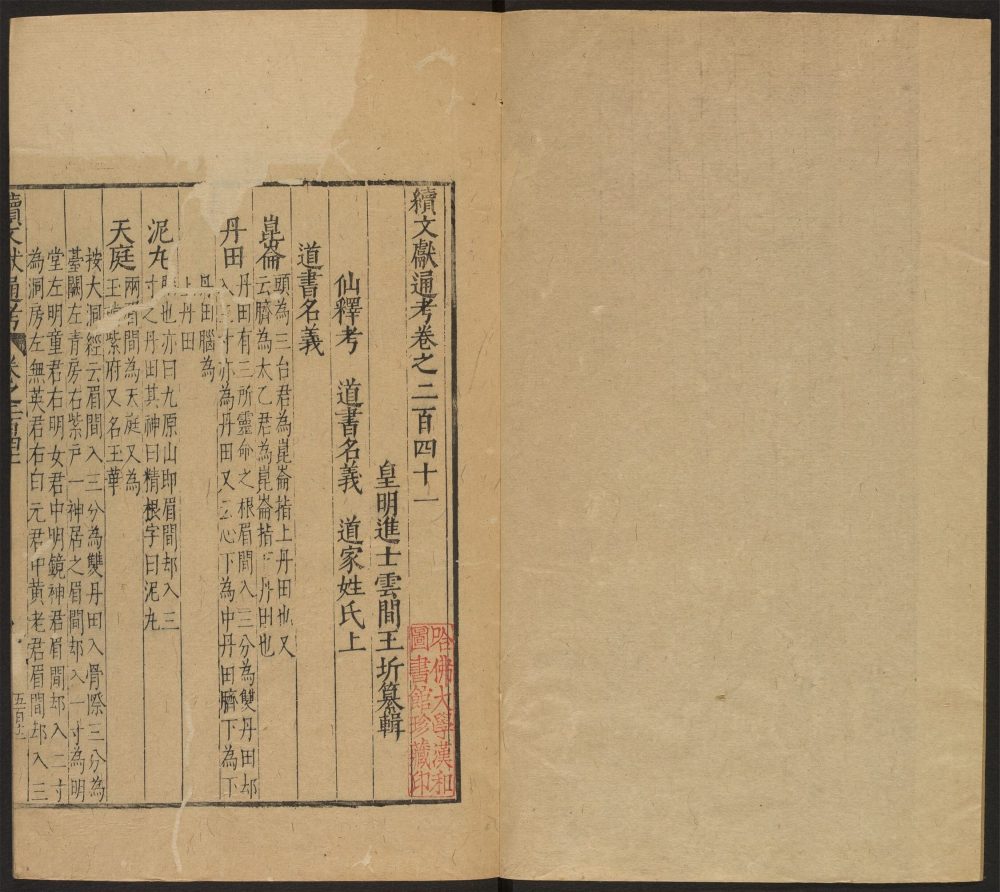 續文獻通考卷之二百四十一
皇明進士雲間王圻纂輯
仙釋考　道書名義　道家姓氏上
道書名義
崑崙
頭為三台君為崑崙指上丹田也又
云臍為太乙君為崑崙指下丹田也
丹田
丹田有三所靈命之根眉間入三分為雙丹田却
入三寸亦為丹田又云心下為中丹田臍下為下
丹田腦為
上丹田
泥丸
也亦曰九原山即眉間却入三
寸之丹田其神曰精根字曰泥丸
天庭
兩眉間為天庭又為
玉 紫府又名玉華
按大洞經云眉間入三分為雙丹田入骨際三分為
臺闕左青房右紫戶一神居之眉間却入一寸為明
堂左明童君右明女君中明鏡神君眉間却入二寸
為洞房左無英君右白元君中黃老君眉間却入三
續文獻通考
卷之二百四十一
五百
哈佛大學漢和
圖書館珍藏印